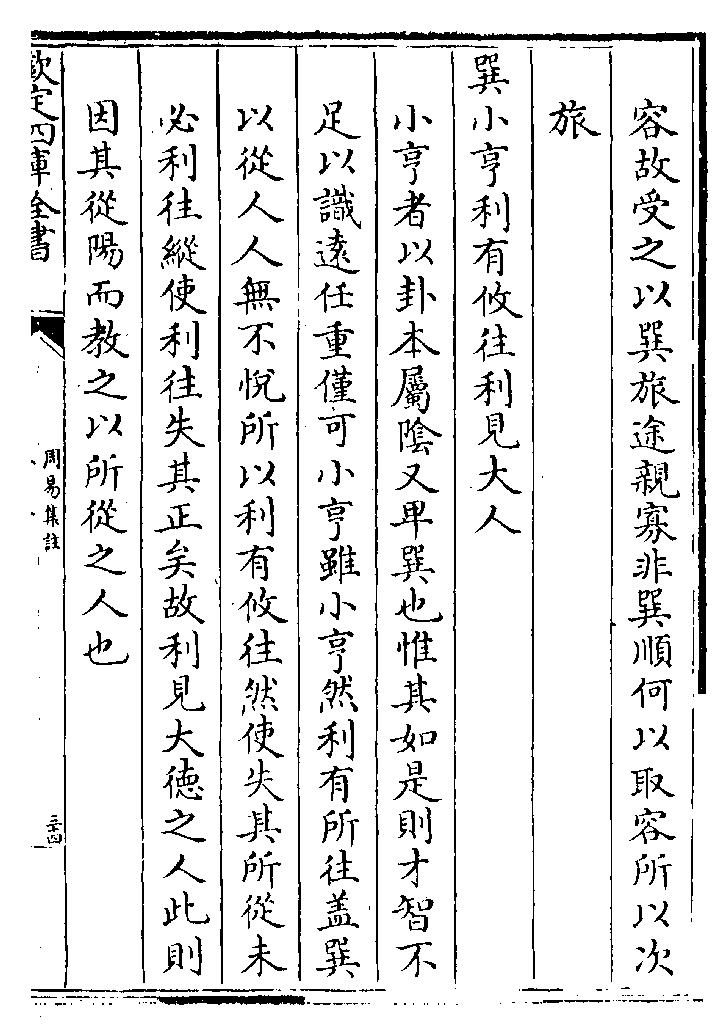 容故受之以巽旅途親寡非巽順何以取容所以次
旅
巽小亨利有攸往利見大人
小亨者以卦本屬陰又卑巽也惟其如是則才智不
足以識遠任重僅可小亨雖小亨然利有所往盖巽
以從人人無不悅所以利有攸往然使失其所從未
必利往縱使利往失其正矣故利見大德之人此則
因其從陽而教之以所從之人也
欽定四庫全書
周易集註
三十四